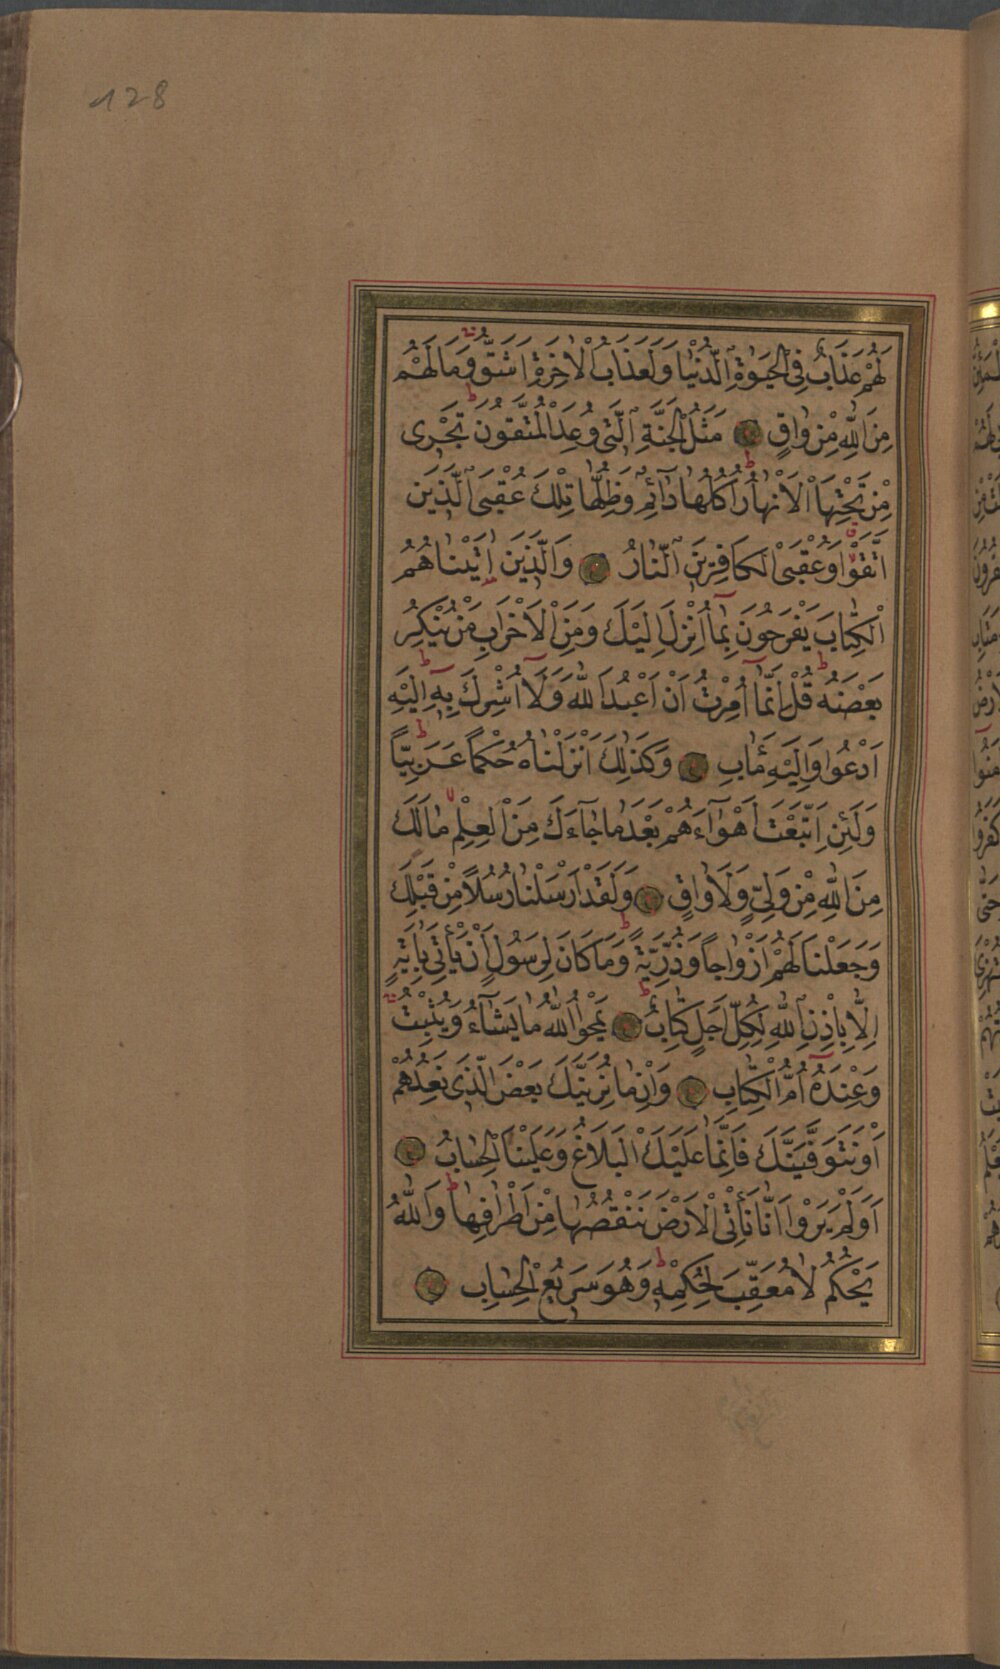 128
لَهُمْ عَذَابٌ فِى الْحَيٰوةِ الدُّنْيَا وَلَعَذَابُ الْاٰخِرَةِ اَشَقُّ وَمَا لَهُمْ
مِنَ اللّٰهِ مِنْ وَاقٍ مَثَلُ الْجَنَّةِ الَّتِى وُعِدَ الْمُتَّقُونَ تَجْرِى
مِنْ تَحْتِهَا الْاَنْهَارُ اُكُلُهَا دَآئِمٌ وَظِلُّهَا تِلْكَ عُقْبَى الَّذِينَ
اتَّقَوْا وَعُقْبَى الْكَافِرِينَ النَّارُ وَالَّذِينَ اٰتَيْنَاهُمُ
الْكِتَابَ يَفْرَحُونَ بِمَآ اُنْزِلَ اِلَيْكَ وَمِنَ الْاَحْزَابِ مَنْ يُنْكِرُ
بَعْضَهُ قُلْ اِنَّمَآ اُمِرْتُ اَنْ اَعْبُدَ اللّٰهَ وَلَآ اُشْرِكَ بِهٖٓ اِلَيْهِ
اَدْعُوا وَاِلَيْهِ مَاٰبِ وَكَذٰلِكَ اَنْزَلْنَاهُ حُكْمًا عَرَبِيًّا
وَلَئِنِ اتَّبَعْتَ اَهْوَآءَهُمْ بَعْدَ مَا جَآءَكَ مِنَ الْعِلْمِ مَا لَكَ
مِنَ اللّٰهِ مِنْ وَلِىٍّ وَلَا وَاقٍ وَلَقَدْ اَرْسَلْنَا رُسُلًا مِنْ قَبْلِكَ
وَجَعَلْنَا لَهُمْ اَزْوَاجًا وَذُرِّيَّةً وَمَا كَانَ لِرَسُولٍ اَنْ يَأْتِىَ بِاٰيَةٍ
اِلَّا بِاِذْنِ اللّٰهِ لِكُلِّ اَجَلٍ كِتَابٌ يَمْحُوا اللّٰهُ مَا يَشَآءُ وَيُثْبِتُ
وَعِنْدَهُٓ اُمُّ الْكِتَابِ وَاِنْ مَا نُرِيَنَّكَ بَعْضَ الَّذِى نَعِدُهُمْ
اَوْ نَتَوَفَّيَنَّكَ فَاِنَّمَا عَلَيْكَ الْبَلَاغُ وَعَلَيْنَا الْحِسَابُ
اَوَلَمْ يَرَوْا اَنَّا نَأْتِى الْاَرْضَ نَنْقُصُهَا مِنْ اَطْرَافِهَا وَاللّٰهُ
يَحْكُمُ لَا مُعَقِّبَ لِحُكْمِهٖ وَهُوَ سَرِيعُ الْحِسَابِ